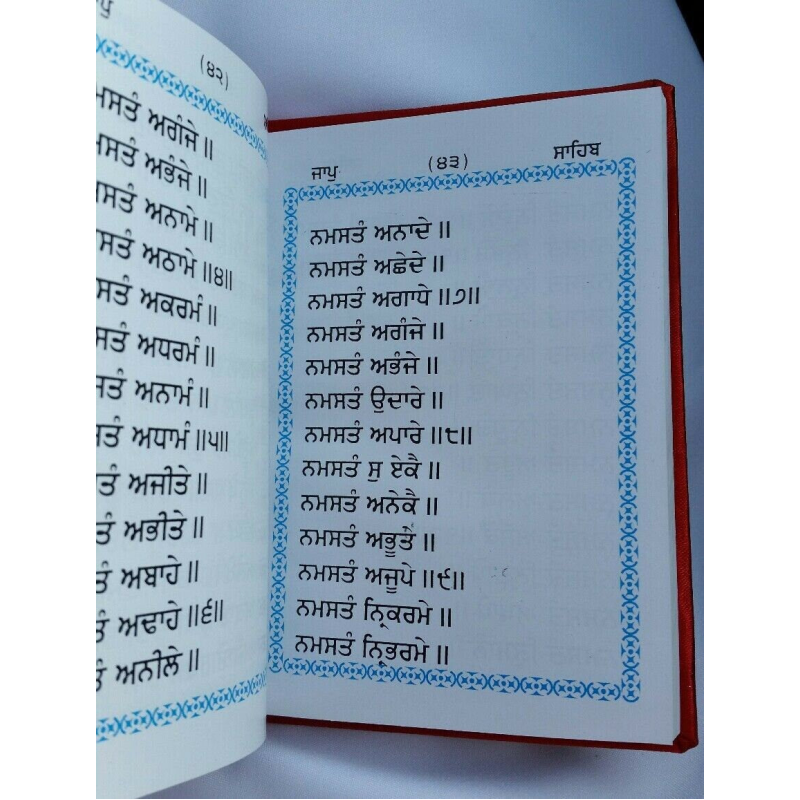 (੪੨)
ਅਗੰਜੇ ॥
ਅਭੰਜੇ ॥
ਅਨਾਮੇ ॥
ਅਠਾਮੇ ॥੪॥
ਅਕਰਮੰ ॥
ਅਧਰਮੰ ॥
ਅਨਾਮੰ ॥
ਅਧਾਮੰ ॥੫॥
ਅਜੀਤੇ ॥
ਅਭੀਤੇ ॥
ਅਬਾਹੇ ॥
ਅਢਾਹੇ ॥੬॥
ਅਨੀਲੇ ॥
ਜਾਪੁ (੪੩) ਸਾਹਿਬ
ਨਮਸਤੰ ਅਨਾਦੇ ॥
ਨਮਸਤੰ ਅਛੇਦੇ ॥
ਨਮਸਤੰ ਅਗਾਧੇ ॥੭॥
ਨਮਸਤੰ ਅਗੰਜੇ ॥
ਨਮਸਤੰ ਅਭੰਜੇ ॥
ਨਮਸਤੰ ਉਦਾਰੇ ॥
ਨਮਸਤੰ ਅਪਾਰੇ ॥੮॥
ਨਮਸਤੰ ਸੁ ਏਕੈ ॥
ਨਮਸਤੰ ਅਨੇਕੈ ॥
ਨਮਸਤੰ ਅਭੂਤੇ ॥
ਨਮਸਤੰ ਅਜੂਪੇ ॥੯॥
ਨਮਸਤੰ ਨ੍ਰਿਕਰਮੇ ॥
ਨਮਸਤੰ ਨ੍ਰਿਭਰਮੇ ॥